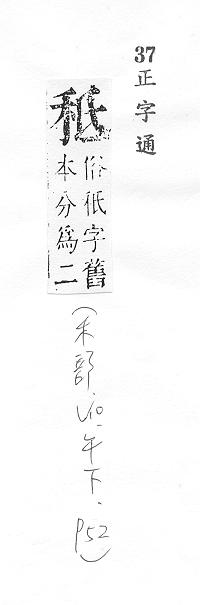 37正字通
秪
俗秖字舊
本分爲二
(禾部.V10.午下.P52)